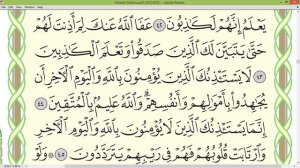 Mushaf Madina.pdf (SECURED) - Adobe Reader
يَعْلَمُ إِنَّهُمْ لَكَٰذِبُونَ ٤٢ عَفَا ٱللَّهُ عَنكَ لِمَ أَذِنتَ لَهُمْ
حَتَّىٰ يَتَبَيَّنَ لَكَ ٱلَّذِينَ صَدَقُوا۟ وَتَعْلَمَ ٱلْكَٰذِبِينَ ٤٣
لَا يَسْتَـْٔذِنُكَ ٱلَّذِينَ يُؤْمِنُونَ بِٱللَّهِ وَٱلْيَوْمِ ٱلْءَاخِرِ أَن
يُجَٰهِدُوا۟ بِأَمْوَٰلِهِمْ وَأَنفُسِهِمْ ۗ وَٱللَّهُ عَلِيمٌۢ بِٱلْمُتَّقِينَ ٤٤
إِنَّمَا يَسْتَـْٔذِنُكَ ٱلَّذِينَ لَا يُؤْمِنُونَ بِٱللَّهِ وَٱلْيَوْمِ ٱلْءَاخِرِ
وَٱرْتَابَتْ قُلُوبُهُمْ فَهُمْ فِى رَيْبِهِمْ يَتَرَدَّدُونَ ٤٥ وَلَوْ